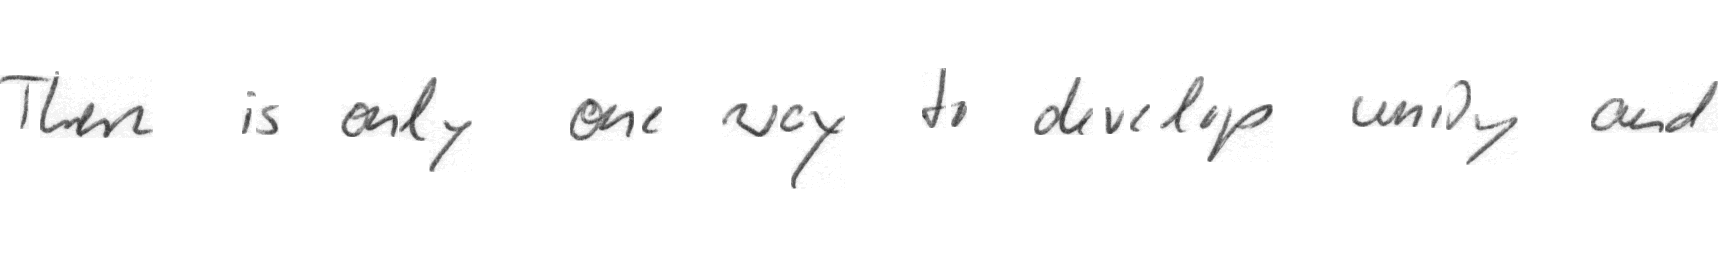 There is only one way to develop unity and